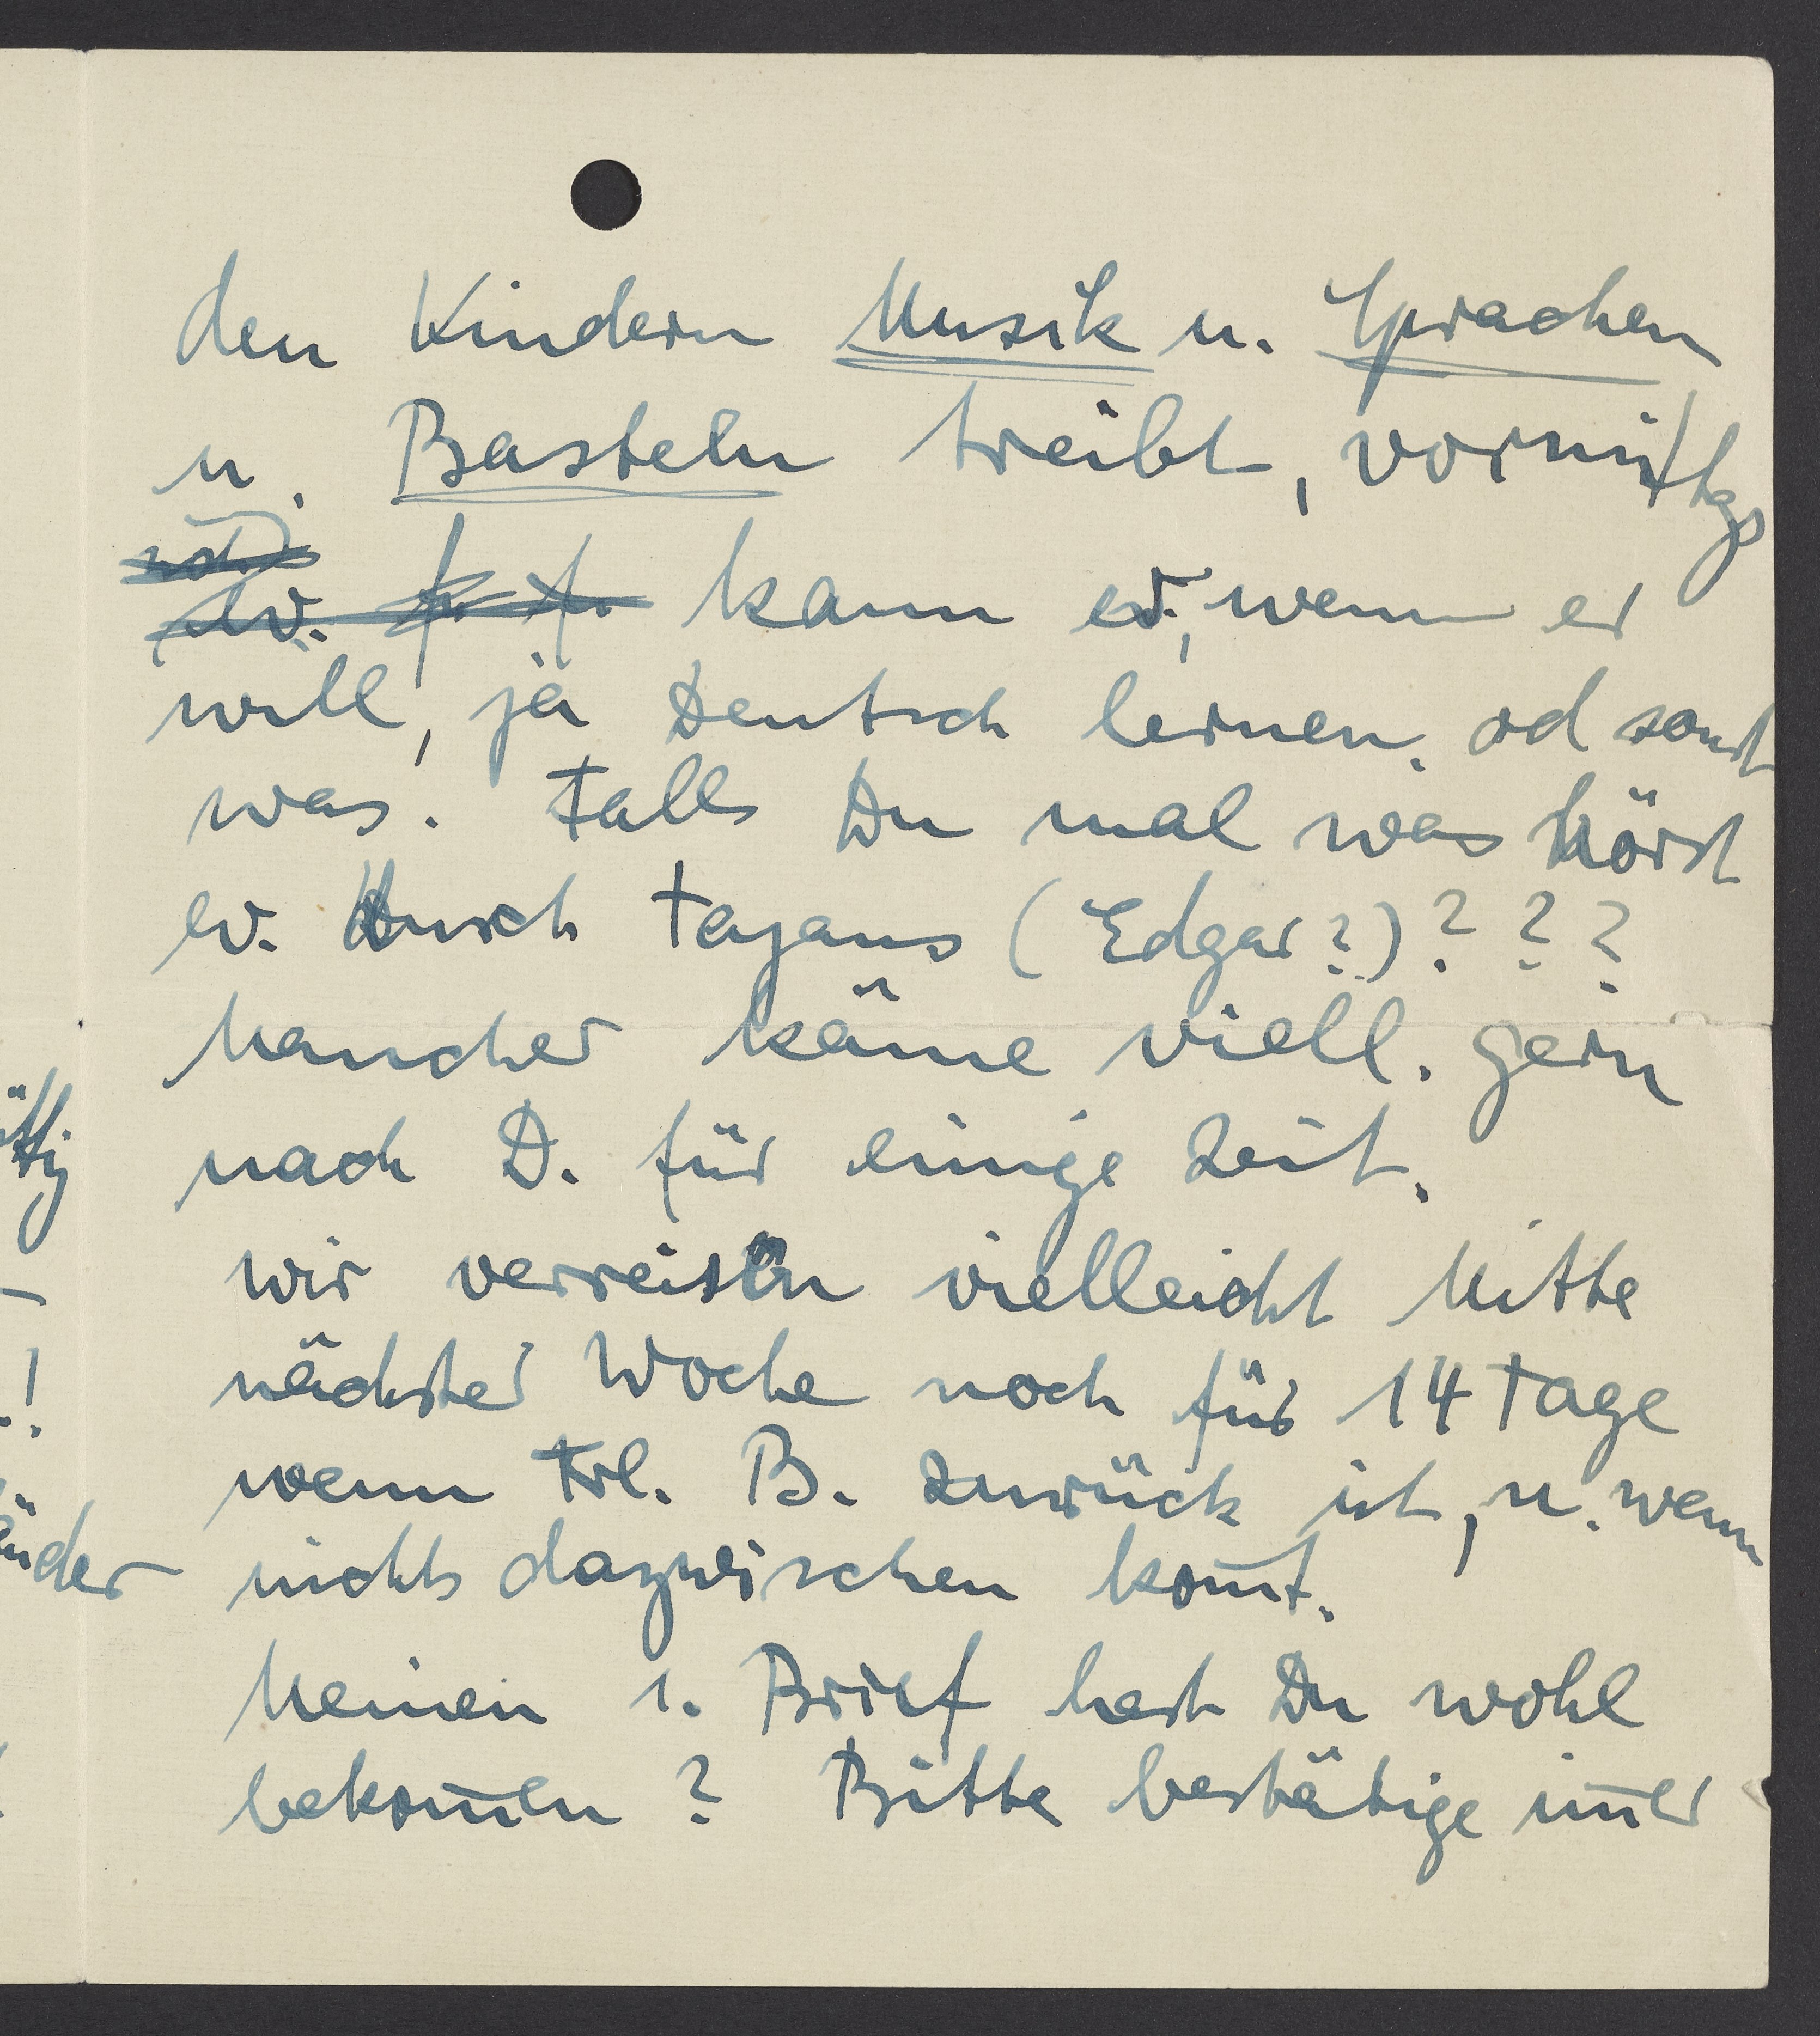 den Kindern Musik u. Sprachen
u. Basteln treibt, vormittgs
kann er, wenn er
will, ja Deutsch lernen. od sonst
was. Falls Du mal was hörst
ev. durch Tajans (Edgar?)???
Mancher käme viell. gern
nach D. für einige Zeit.
Wir verreisen vielleicht Mitte
nächster Woche noch für 14 Tage
wenn Frl. B. zurück ist, u. wenn
nichts dazwischen kom̄t.
Meinen 1. Brief hast Du wohl
bekom̄en? Bitte bestätige im̄er